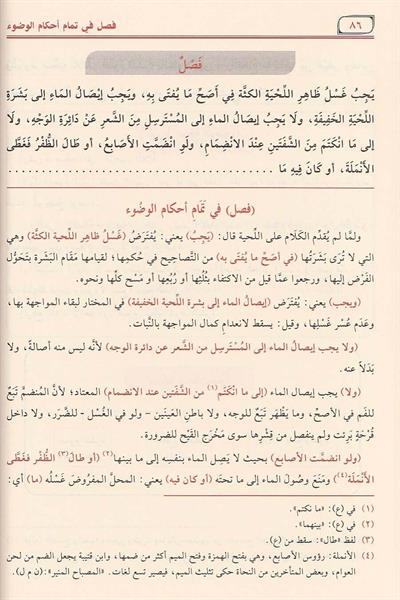 ٨٦
فصل في تمام أحكام الوضوء
فَصْلٌ
يَجِبُ غَسْلُ ظَاهِرِ اللِّحْيَةِ الكثَّةِ فِي أَصَحِّ مَا يُفتَى بِهِ، ويَجِبُ إِيصَالُ المَاءِ إلى بَشَرَةِ
اللِّحْيَةِ الخَفِيفَةِ، ولَا يَجِبُ إِيصَالُ الماءِ إلى المُسْتَرسِلِ مِنَ الشَّعرِ عَنْ دَائِرَةِ الوَجْهِ، ولَا
إلى مَا انْكَتَمَ مِنَ الشَّفَتَينِ عِنْدَ الانْضِمَامِ، ولَو انْضَمَّتِ الأَصَابِعُ، أو طَالَ الظُّفْرُ فَغَطَّى
الأَنْمَلَةَ، أو كَانَ فِيهِ مَا ............................................
(فصل) في تَمَامِ أحكام الوضُوءِ
ولمَّا لم يُقدِّم الكَلَام على اللحية قال: (يَجِبُ) يعني: يُفتَرَضُ (غَسْلُ ظاهِرِ اللحية الكثَّة) وهي
التي لا تُرَى بَشَرَتُها (في أصَحِّ ما يُفْتَى به) من التَّصاحيح في حُكمِها؛ لقيامها مَقَام البَشَرة بتَحَوُّلِ
الفَرْض إليها، ورجعوا عمَّا قيل من الاكتفاء بثُلُثِها أو رُبُعِها أو مَسْح كلِّها ونحوه.
(ويجب) يعني: يُفتَرَض (إيصَالُ الماء إلى بشرة اللِّحية الخفيفة) في المختار لبقاء المواجهة بها،
وعَدَم عُسْر غَسْلِها، وقيل: يسقط لانعدام كمال المواجهة بالنَّبات.
(ولا يجب إيصال الماء إلى المُسْتَرسِل من الشَّعر عن دائرة الوجه) لأنَّه ليس منه أصالةً، ولا
بَدَلاً عنه.
(ولا) يجب إيصال الماء (إلى ما انْكَتَم(١) من الشَّفَتَين عند الانضمام) المعتاد؛ لأنَّ المُنضمَّ تَبَعٌ
للفَم في الأصحِّ، وما يَظهَر تَبَعٌ للوجه، ولا باطنِ العينَين - ولو في الغُسْل - للضَّرَر، ولا داخل
قُرْحَةٍ بَرِئت ولم ينفصل من قِشْرها سوى مَخْرَج القَيْح للضرورة.
(ولو انضمَّت الأصابع) بحيث لا يَصِل الماء بنفسِه إلى ما بينها(٢) (أو طالَ(٣) الظُّفر فغَطَّى
الأَنْمَلَةَ)(٤) ومَنَع وصُول الماء إلى ما تحتَه (أو كان فيه) يعني: المحلَّ المفروضَ غَسْلُه (ما) أي:
(١) في (ع): «ما نكتم».
(٢) في (ع): «بينهما».
(٣) لفظ «طال»: سقط من (ع).
(٤) الأنملة: رؤوس الأصابع، وهي بفتح الهمزة وفتح الميم أكثر من ضمها، وابن قتيبة يجعل الضم من لحن
العوام، وبعض المتأخرين من النحاة حكى تثليث الميم، فيصير تسع لغات. «المصباح المنير»: (ن م ل).